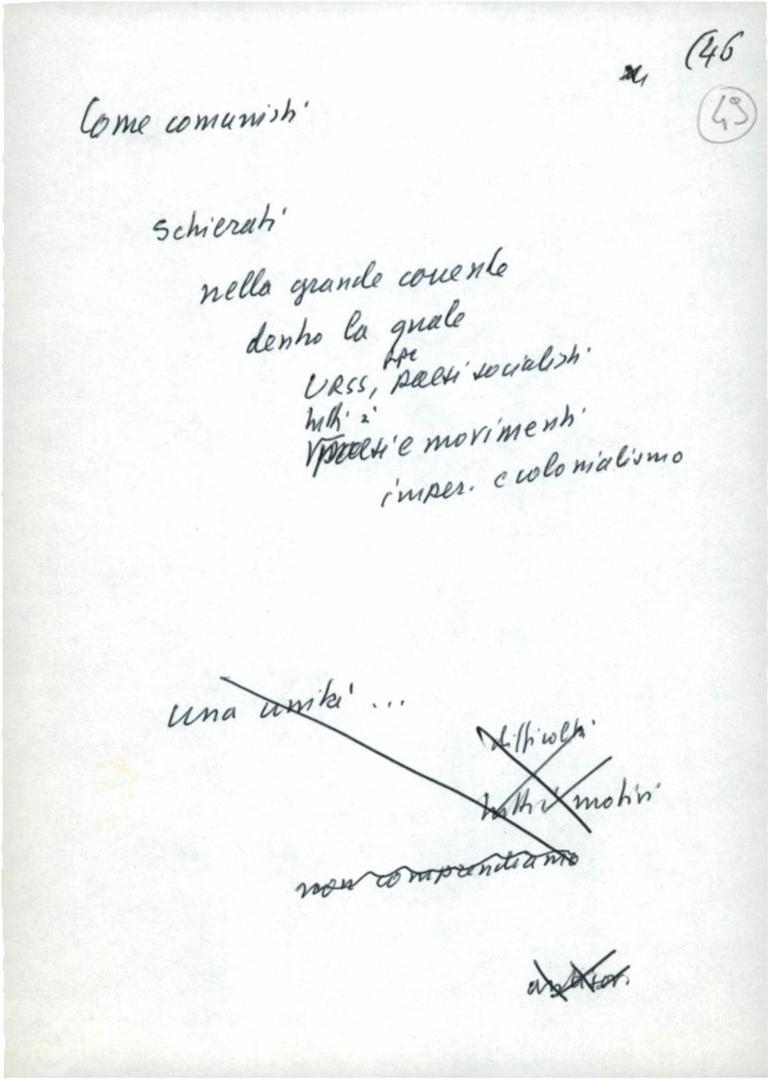 (46
49
Come comunisti
schierati
nella grande corrente
dentro la quale
RPC
URSS, paesi socialisti
tutti i
paesi e movimenti
imper. e colonialismo
una unità ...
difficoltà
tutti i motivi
non comprendiamo